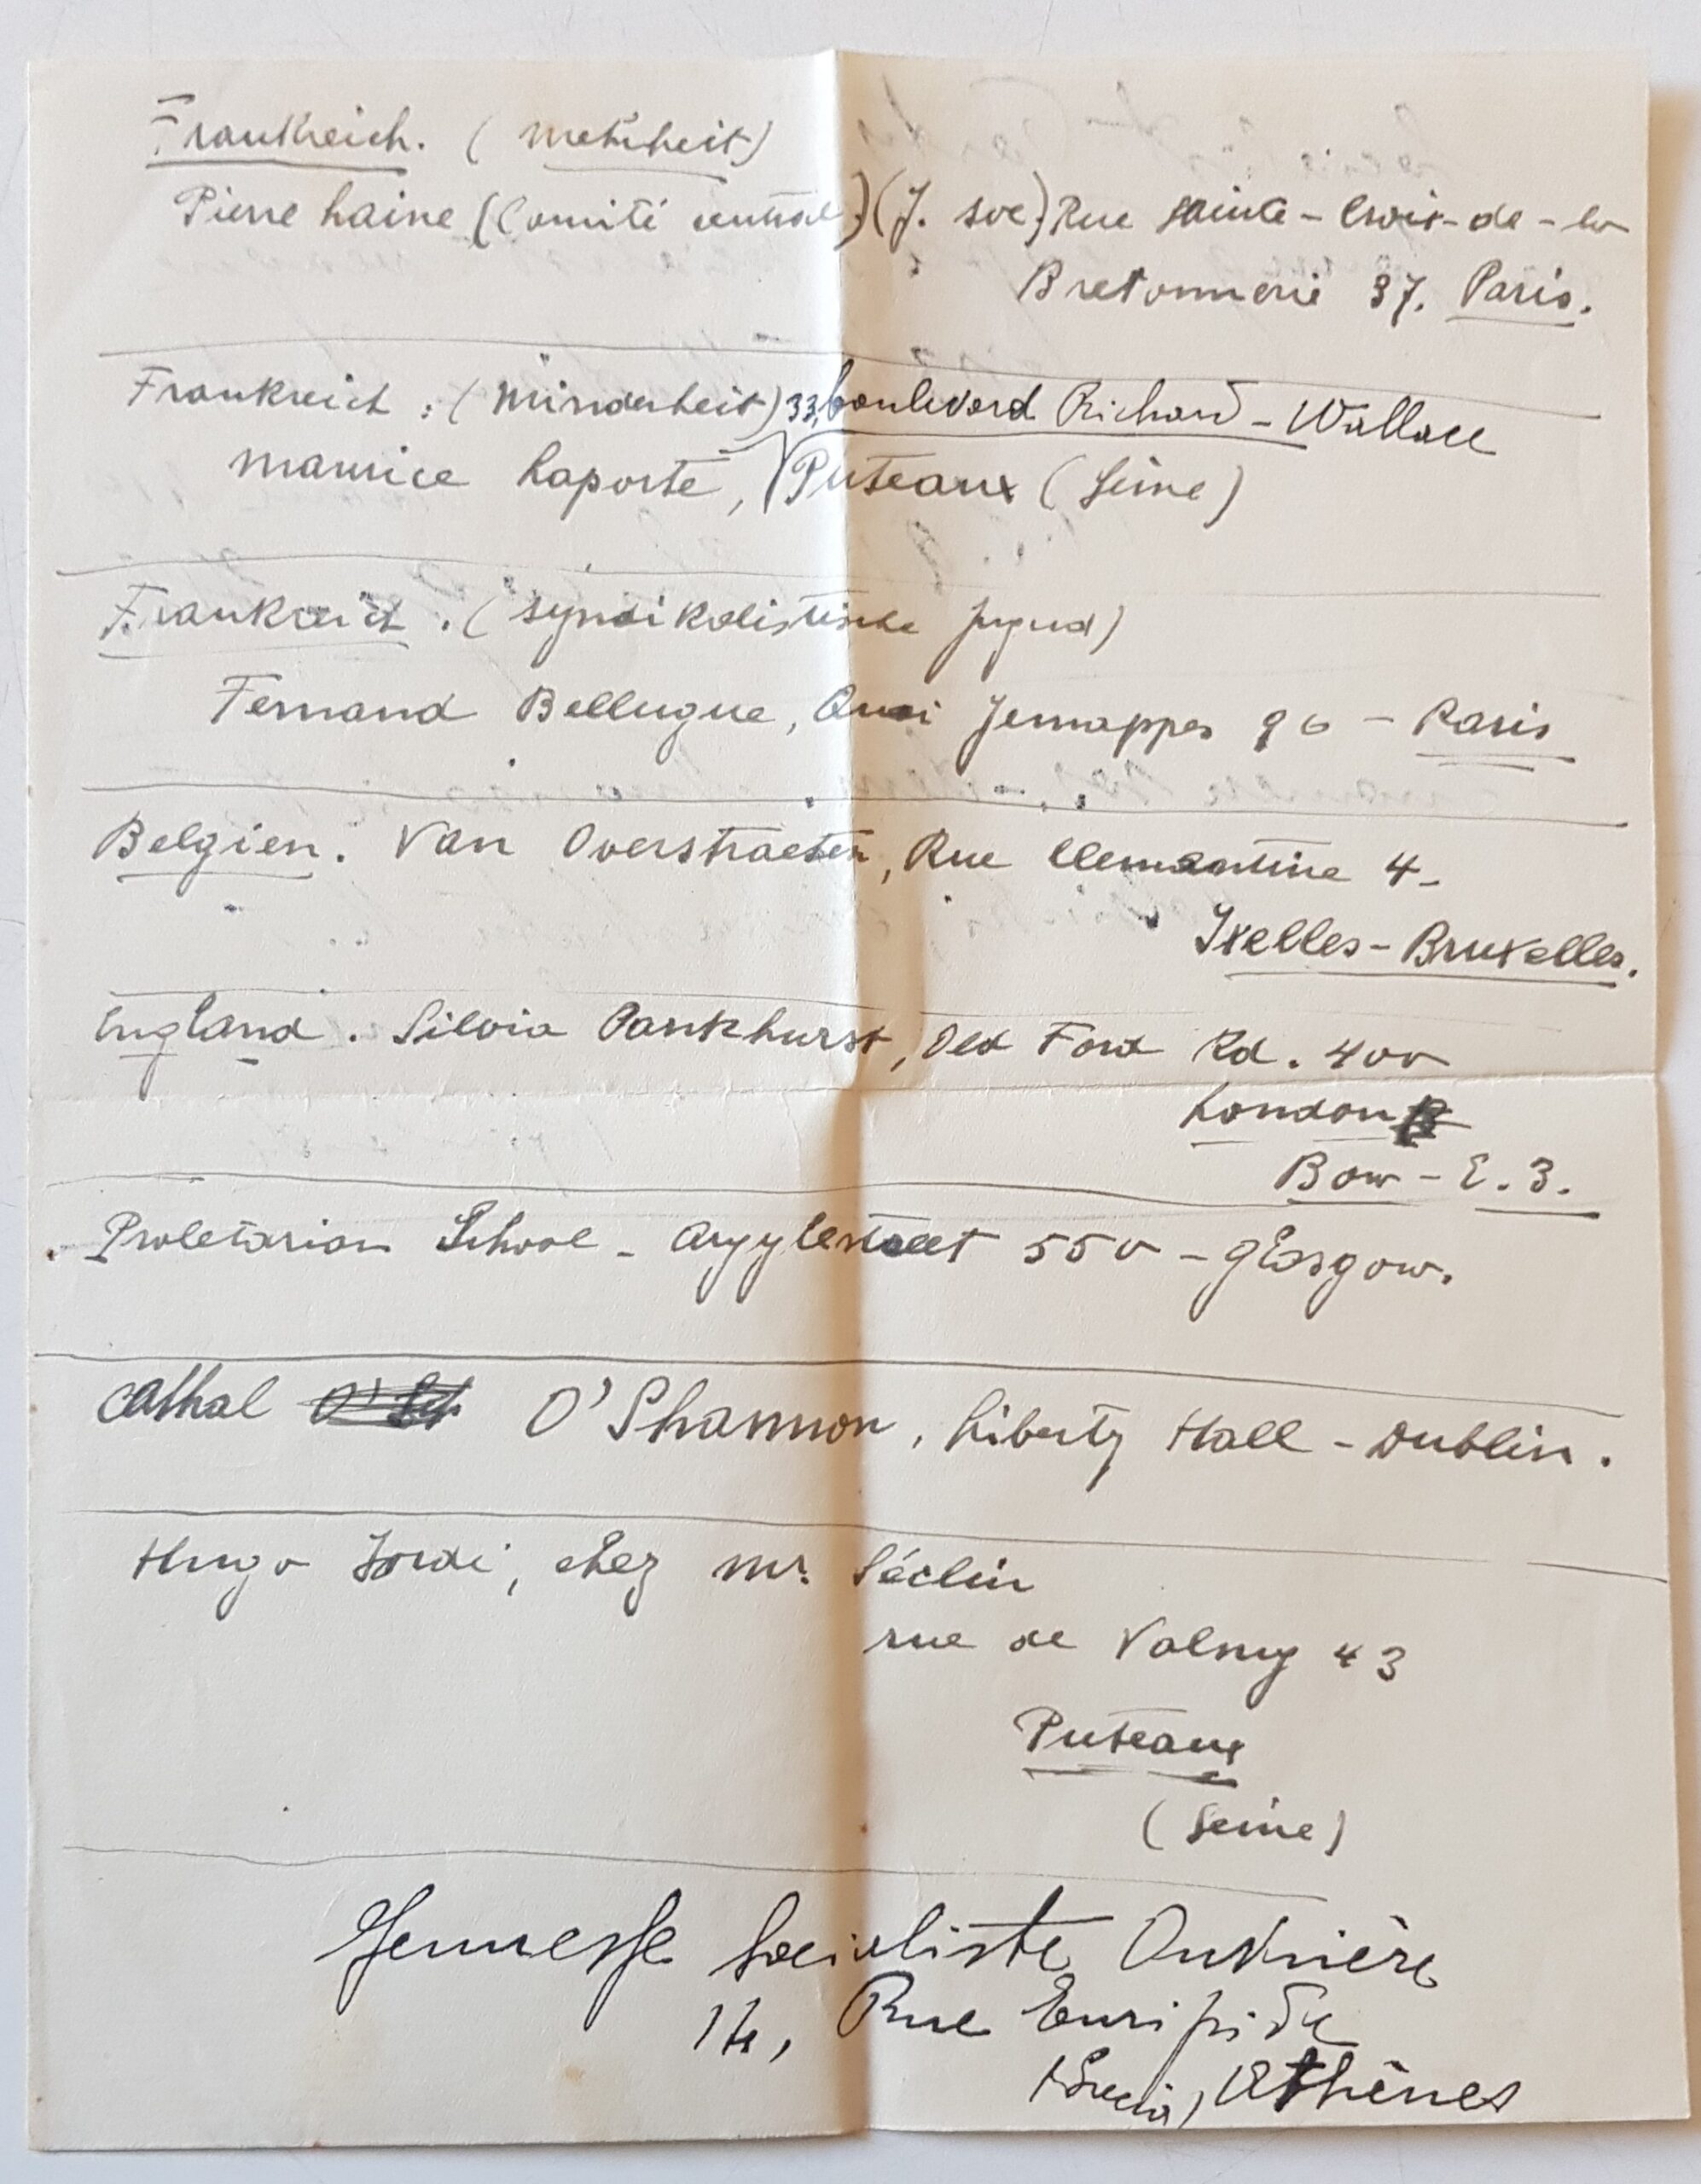 Frankreich. (Mehrheit)
Pierre Laine (Comité central) (J. soc) Rue Sainte-Croix-de-la
Bretonnerie 37. Paris.
Frankreich: (Minderheit) 33, boulevard Richard-Wallace
Maurice Laporte, Puteaux (Seine)
Frankreich. (syndikalistische Jugend)
Fernand Bellugue, Quai Jemappes 96 - Paris
Belgien. Van Overstraeten, Rue Clementine 4-
Ixelles-Bruxelles.
England. Silvia Pankhurst, Old Ford Rd. 400
London
Bow-E.3.
Proletarian School - Argylestreet 550 - Glasgow.
Cathal O'Shannon, Liberty Hall - Dublin.
Hugo, chez Mr. Séclin
rue de Valmy 43
Puteaux
(Seine)
Jeunesse Socialiste Ouvrière
14, Rue Euripide
Athènes